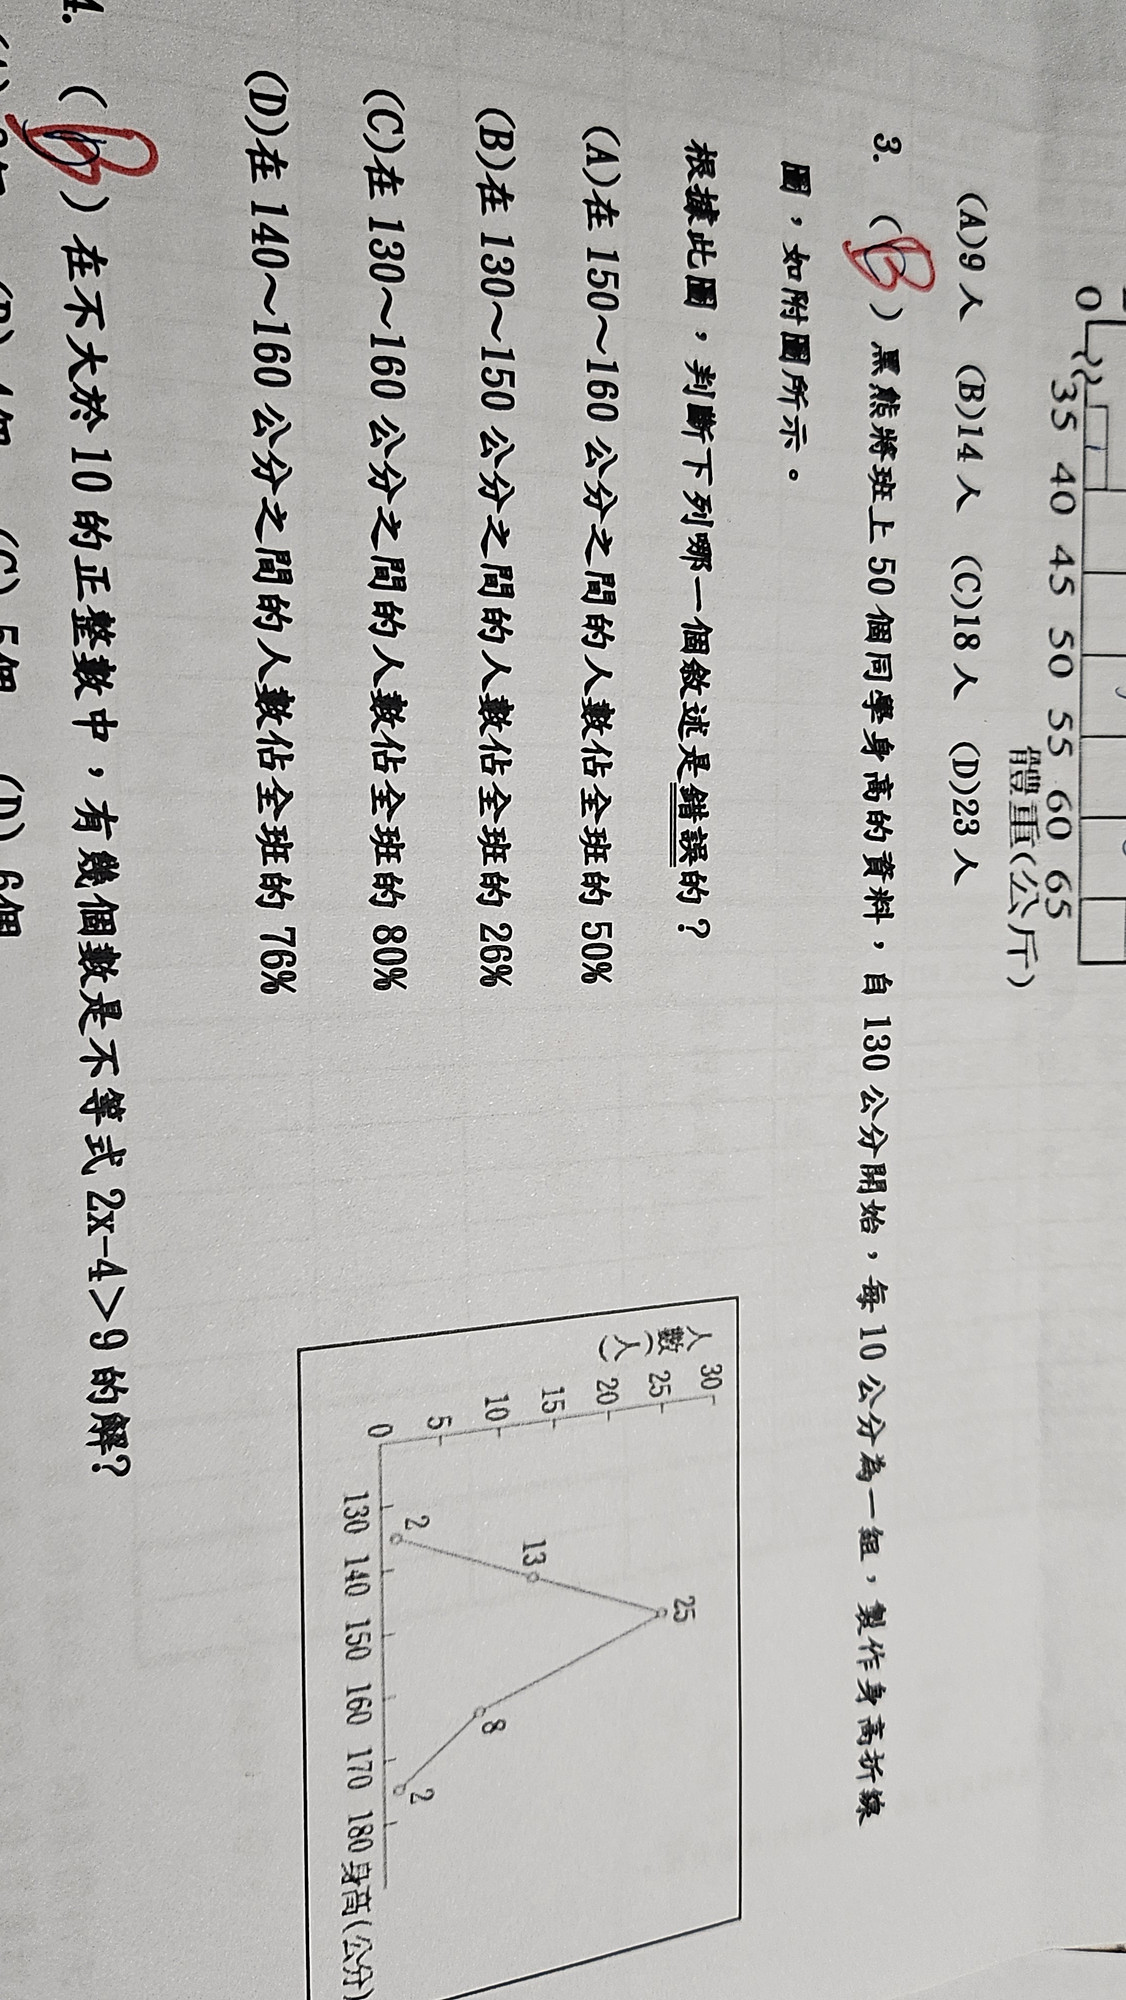 0 35 40 45 50 55 60 65
體重(公斤)
(A)9人 (B)14人 (C)18人 (D)23人
3. ( B ) 黑熊將班上 50 個同學身高的資料，自 130 公分開始，每 10 公分為一組，製作身高折線
圖，如附圖所示。
根據此圖，判斷下列哪一個敘述是錯誤的？
(A)在 150～160 公分之間的人數佔全班的 50%
(B)在 130～150 公分之間的人數佔全班的 26%
(C)在 130～160 公分之間的人數佔全班的 80%
(D)在 140～160 公分之間的人數佔全班的 76%
人數(人)
30
25
20
15
10
5
0
2
13
25
8
2
130 140 150 160 170 180 身高(公分)
4. ( B ) 在不大於 10 的正整數中，有幾個數是不等式 2x-4＞9 的解?
(C) 5個 (D) 6個